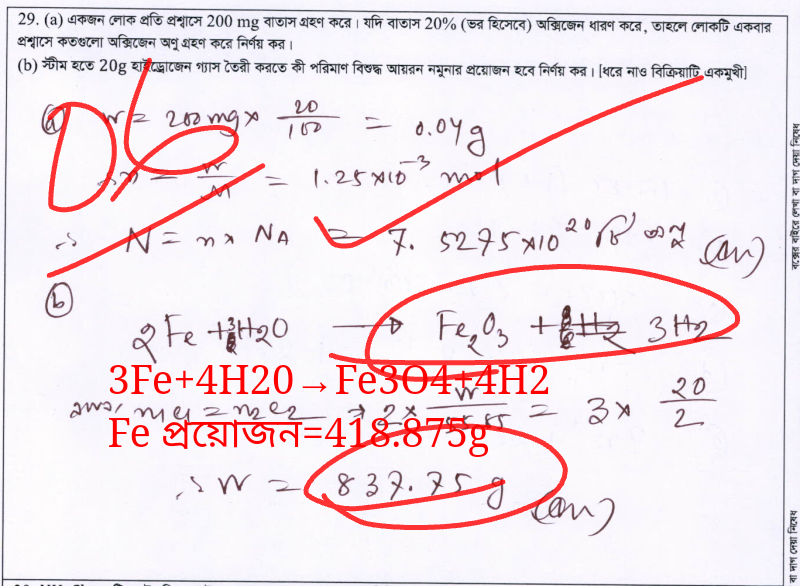 29. (a) একজন লোক প্রতি প্রশ্বাসে 200 mg বাতাস গ্রহণ করে। যদি বাতাস 20% (ভর হিসেবে) অক্সিজেন ধারণ করে, তাহলে লোকটি একবার
প্রশ্বাসে কতগুলো অক্সিজেন অণু গ্রহণ করে নির্ণয় কর।
(b) স্টীম হতে 20g হাইড্রোজেন গ্যাস তৈরী করতে কী পরিমাণ বিশুদ্ধ আয়রন নমুনার প্রয়োজন হবে নির্ণয় কর। [ধরে নাও বিক্রিয়াটি একমুখী]
(a) W = 200 mg × 20/100 = 0.04 g
06
∴ n = W/M = 1.25×10^-3 mol
∴ N = n × NA = 7.5275×10^20 টি অণু (Ans)
(b)
2Fe + 3H2O → Fe2O3 + 3H2
3Fe+4H20→Fe3O4+4H2
= 3 × 20/2
Fe প্রয়োজন=418.875g
∴ W = 837.75 g (Ans)
বক্সের বাইরে লেখা বা দাগ দেয়া নিষেধ
বা দাগ দেয়া নিষেধ